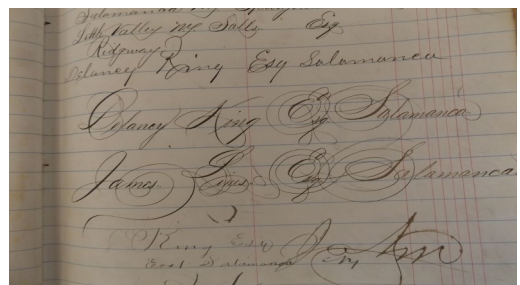 Salamanca
Little Valley NY Sally Esq
Ridgeway
Delaney King Esq Salamanca
Delaney King Esq Salamanca
James Esq Salamanca
King Esq
East Salamanca